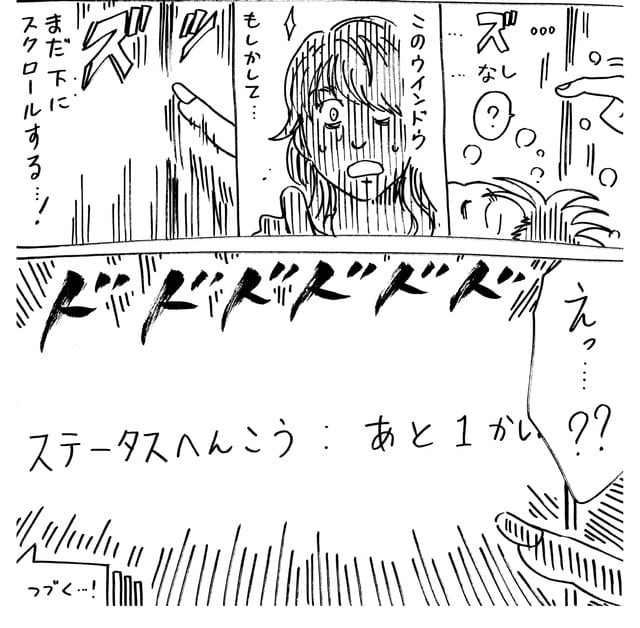 …ズ…
…なし
?
?
このウインドウ
もしかして…
ズッ
まだ下に
スクロールする…!
えっ……??
ズズズズズズ
ステータスへんこう：あと1かい
つづく…!